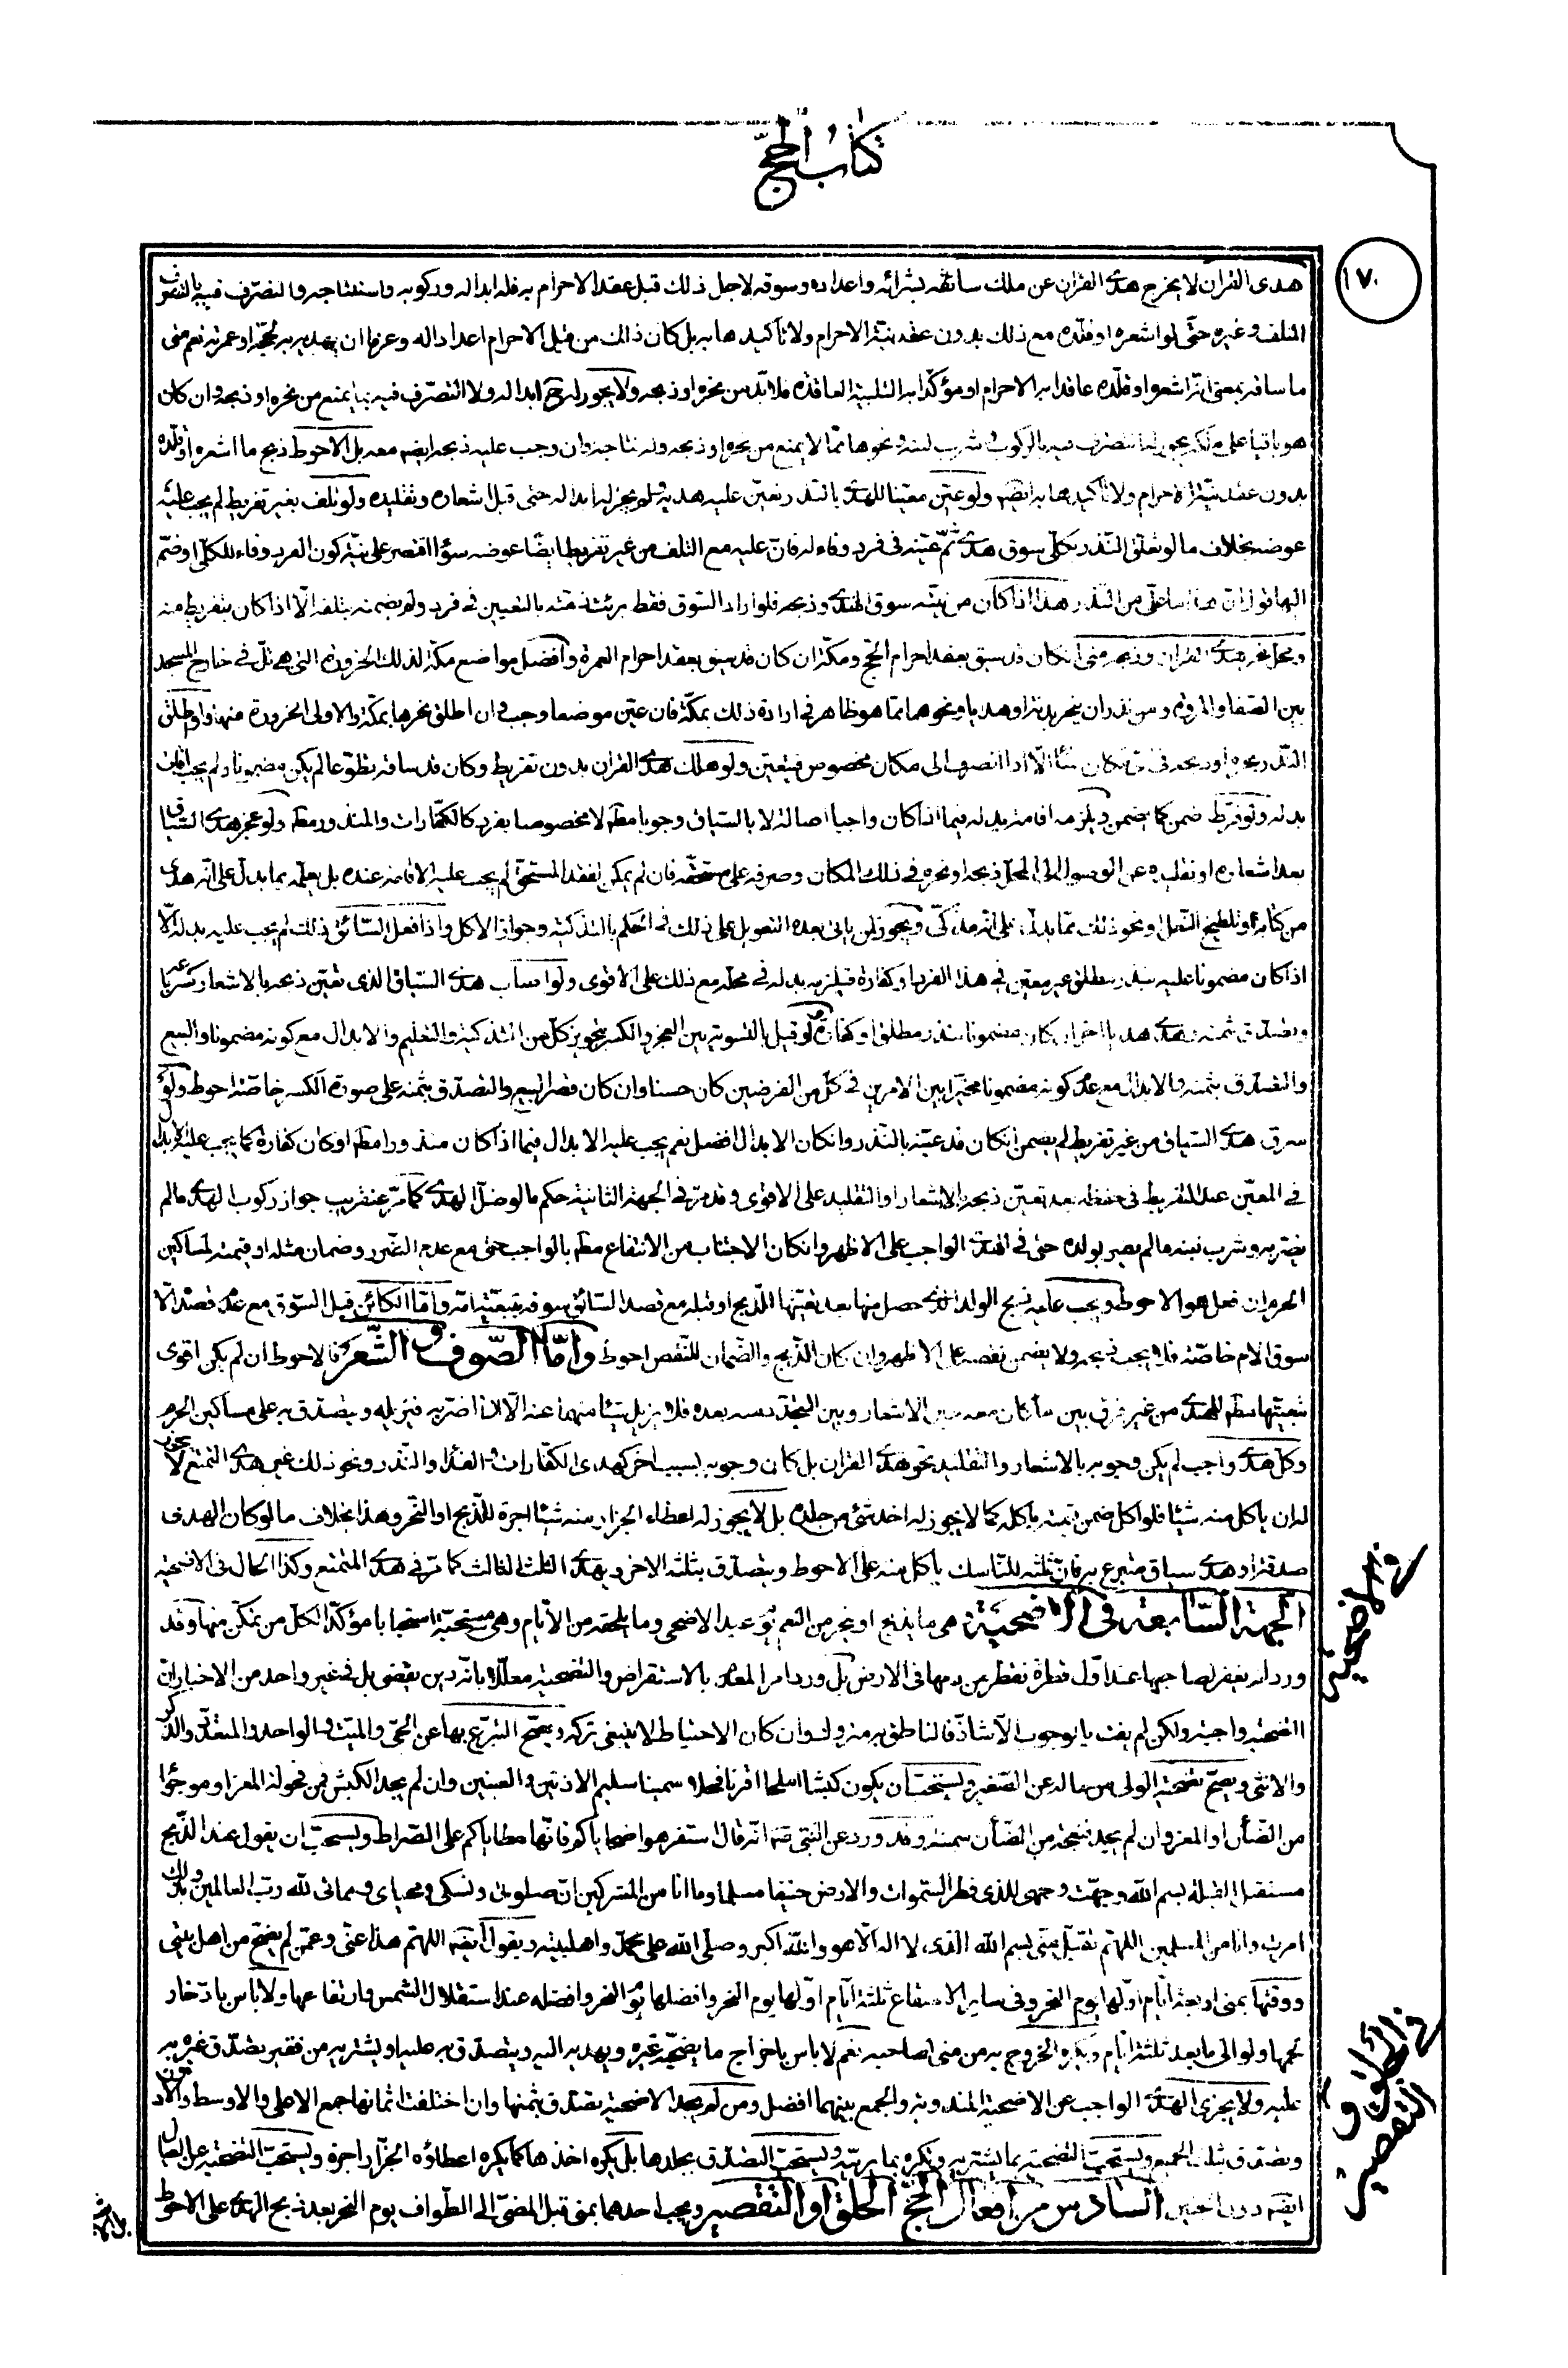 كتاب الحج
١٧٠
هدى القران لا يخرج هدى القران عن ملك سائقه بشرائه واعداده وسوقه لاجل ذلك قبل عقد الاحرام به فله ابداله وركوبه واستنتاجه والتصرف فيه بالتصرف
المتلف وغيره حتى لو اشعره او قلده مع ذلك بدون عقد نية الاحرام ولا تأكيدها به بل كان ذلك من قبل الاحرام اعدادا له وعزما ان يهديه به لحجه او عمرته نعم متى
ما ساقه بمعنى انه اشعره او قلده عاقدا به الاحرام او مؤكدا به التلبية العاقدة فلا بد من نحره او ذبحه ولا يجوز له ح ابداله ولا التصرف فيه بما يمنع من نحره او ذبحه وان كان
هو باقيا على ملكه يجوز له التصرف فيه بالركوب وشرب لبنه ونحوها مما لا يمنع من نحره او ذبحه وله نتاجه وان وجب عليه ذبحه ايضه معه بل الاحوط ذبح ما اشعره او قلده
بدون عقد نية الاحرام ولا تأكيدها به ايضه ولو عين معينا للهدى بالنذر تعين عليه هديه ولم يجز له ابداله حتى قبل اشعاره وتقليده ولو تلف بغير تفريط لم يجب عليه
عوضه بخلاف ما لو تعلق النذر بكلى سوق هدى ثم عينه في فرد وفاء له فان عليه مع التلف من غير تفريط ايضا عوضه سواء اقتصر على نية كون الفرد وفاء للكلى او ضم
اليها هذا ما على من النذر هذا اذا كان من نيته سوق الهدى وذبحه فلو اراد السوق فقط برئت ذمته بالتعيين في فرد ولم يضمنه بتلفه الا اذا كان بتفريط منه
ومحل نحر هدى القران وذبحه منى ان كان قد سبق بعقد احرام الحج ومكة ان كان قد سبق بعقد احرام العمرة وافضل مواضع مكة لذلك الحزورة التى هى تل في خارج المسجد
بين الصفا والمروة ومن نذر ان ينحر بدنة او هديا ونحوهما مما هو ظاهر في ارادة ذلك بمكة فان عين موضعا وجب وان اطلق نحرها بمكة والاولى الحزورة منها ولو اطلق
النذر نحره او ذبحه في اى مكان شاء الا اذا انصرف الى مكان مخصوص فيتعين ولو هلك هدى القران بدون تفريط وكان قد ساقه تطوعا لم يكن مضمونا ولم يجب اقامة
بدله ولو فرط ضمن كما يضمن ويلزمه اقامة بدله فيما اذا كان واجبا اصالة لا بالسياق وجوبا مطلقا لا مخصوصا بفرد كالكفارات والمنذور مطلقا ولو عجز هدى السياق
بعد اشعاره او تقليده عن الوصول الى المحل ذبحه او نحره في ذلك المكان وصرفه على مستحقه فان لم يمكن لفقد المستحق لم يجب عليه الاقامة عنده بل يعلمه بما يدل على انه هدى
من كتابة او تلطيخ النعل او نحو ذلك مما يدل على انه مذكى ويجوز لمن ياتى بعده التعويل على ذلك في الحكم بالتذكية وجواز الاكل واذا فعل السائق ذلك لم يجب عليه بدله الا
اذا كان مضمونا عليه بنذر مطلق غير معين في هذا الفرد او كفارة فيلزمه بدله في محله مع ذلك على الاقوى ولو اصاب هدى السياق الذى تعين ذبحه بالاشعار كسر باعه
وتصدق بثمنه واهدى هديا اخر ان كان مضمونا بنذر مطلق او كفارة ولو قيل بالتسوية بين العجز والكسر بتجويز كل من التذكية والتعليم والابدال مع كونه مضمونا والبيع
والتصدق بثمنه والابدال مع عدم كونه مضمونا مخيرا بين الامرين في كل من الفرضين كان حسنا وان كان قصر البيع والتصدق بثمنه على صورة الكسر خاصة احوط ولو
سرق هدى السياق من غير تفريط لم يضمن ان كان قد عينه بالنذر وان كان الابدال افضل نعم يجب عليه الابدال فيما اذا كان منذورا مطلقا او كان كفارة كما يجب عليه الابدال
في المعين عند التفريط في حفظه بعد تعين ذبحه بالاشعار او التقليد على الاقوى وقد مر في الجهة الثانية حكم ما لو ضل الهدى كما مر عنقريب جواز ركوب الهدى ما لم
يضر به وشرب لبنه ما لم يضر بولده حتى في الهدى الواجب على الاظهر وان كان الاجتناب من الانتفاع مطلقا بالواجب حتى مع عدم الضرر وضمان مثله او قيمته لمساكين
الحرم ان فعل هو الاحوط ويجب عليه ذبح الولد الذى حصل منها بعد تعينها للذبح او قبله مع قصد السائق سوقه بتبعية امه واما الكائن قبل السوق مع عدم قصده الا
سوق الام خاصة فلا يجب ذبحه ولا يضمن نقصه على الاظهر وان كان الذبح والضمان للنقص احوط واما الصوف والشعر فالاحوط ان لم يكن اقوى
تبعيتها مطلقا للهدى من غير فرق بين ما كان معه حين الاشعار وبين المتجدد منه بعده فلا يزيل شيئا منهما عنه الا اذا اضر به فيزيله ويتصدق به على مساكين الحرم
وكل هدى واجب لم يكن وجوبه بالاشعار والتقليد نحو هدى القران بل كان وجوبه لسبب اخر كهدى الكفارات والفداء والنذر ونحو ذلك غير هدى التمتع لا يجوز
له ان ياكل منه شيئا فلو اكل ضمن قيمته ما كله كما لا يجوز له اخذ شئ من جلده بل لا يجوز له اعطاء الجزار منه شيئا اجرة للذبح او النحر وهذا بخلاف ما لو كان الهدى
صدقة او هدى سياق متبرع به فان ثلثه للناسك يأكل منه على الاحوط ويتصدق بثلثه الاخر ويهدى الثلث الثالث كما مر في هدى المتمتع وكذا الحال في الاضحية
الجهة السابعة في الاضحية وهى ما يذبح او ينحر من النعم يوم عيد الاضحى وما يلحقه من الايام وهى مستحبة استحبابا مؤكدا لكل من يمكن منها وقد
ورد انه يغفر لصاحبها عند اول قطرة تقطر من دمها في الارض بل ورد امر المعدم بالاستقراض والتضحية معللا بانه دين يقضى بل في غير واحد من الاخبار ان
الضحية واجبة ولكن لم يفت بالوجوب الا شاذ فالناطق به متروك وان كان الاحتياط لا ينبغى تركه ويصح التبرع بها عن الحى والميت والواحد والمتعدد والذكر
والانثى ويصح تضحية الولى من ماله عن الصغير ويستحب ان يكون كبشا املحا اقرنا فحلا سمينا سليم الاذنين والعينين وان لم يجد الكبش فمن فحولة المعز او موجوءا
من الضأن او المعز وان لم يجد فنعجة من الضأن سمينة وقد ورد عن النبى صه انه قال استفرهوا ضحاياكم فانها مطاياكم على الصراط ويستحب ان يقول عند الذبح
مستقبل القبلة بسم الله وجهت وجهى للذى فطر السموات والارض حنيفا مسلما وما انا من المشركين ان صلوتى ونسكى ومحياى ومماتى لله رب العالمين بذلك
امرت وانا من المسلمين اللهم تقبل منى بسم الله الذى لا اله الا هو والله اكبر وصلى الله على محمد واهلبيته ويقول ايضه اللهم هذا عنى وعمن لم يضح من اهل بيتى
ووقتها بمنى اربعة ايام اولها يوم النحر وفى ساير الاصقاع ثلثة ايام اولها يوم النحر وافضلها يوم النحر وافضله عند استقلال الشمس وارتفاعها ولا باس بادخار
لحمها ولو الى ما بعد ثلثة ايام ويكره الخروج به من منى لصاحبه نعم لا باس باخراج ما يضحيه غيره ويهديه اليه ويتصدق به عليه او يشتريه من فقير تصدق غيره به
عليه ولا يجزى الهدى الواجب عن الاضحية المندوبة والجمع بينهما افضل ومن لم يجد الاضحية تصدق بثمنها وان اختلفت اثمانها جمع الاعلى والاوسط والادون
وتصدق بثلث الجميع ويستحب التضحية بما يشتريه ويكره بما يربيه ويستحب التصدق بجلدها بل يكره اخذها كما يكره اعطاؤه الجزار اجرة ويستحب التضحية عن العيال
ايضه دون الجنين السادس من افعال الحج الحلق او التقصير ويجب احدهما بمنى قبل المضى الى الطواف يوم النحر بعد ذبح الهدى على الاحوط
في الاضحية
في الحلق و
التقصير